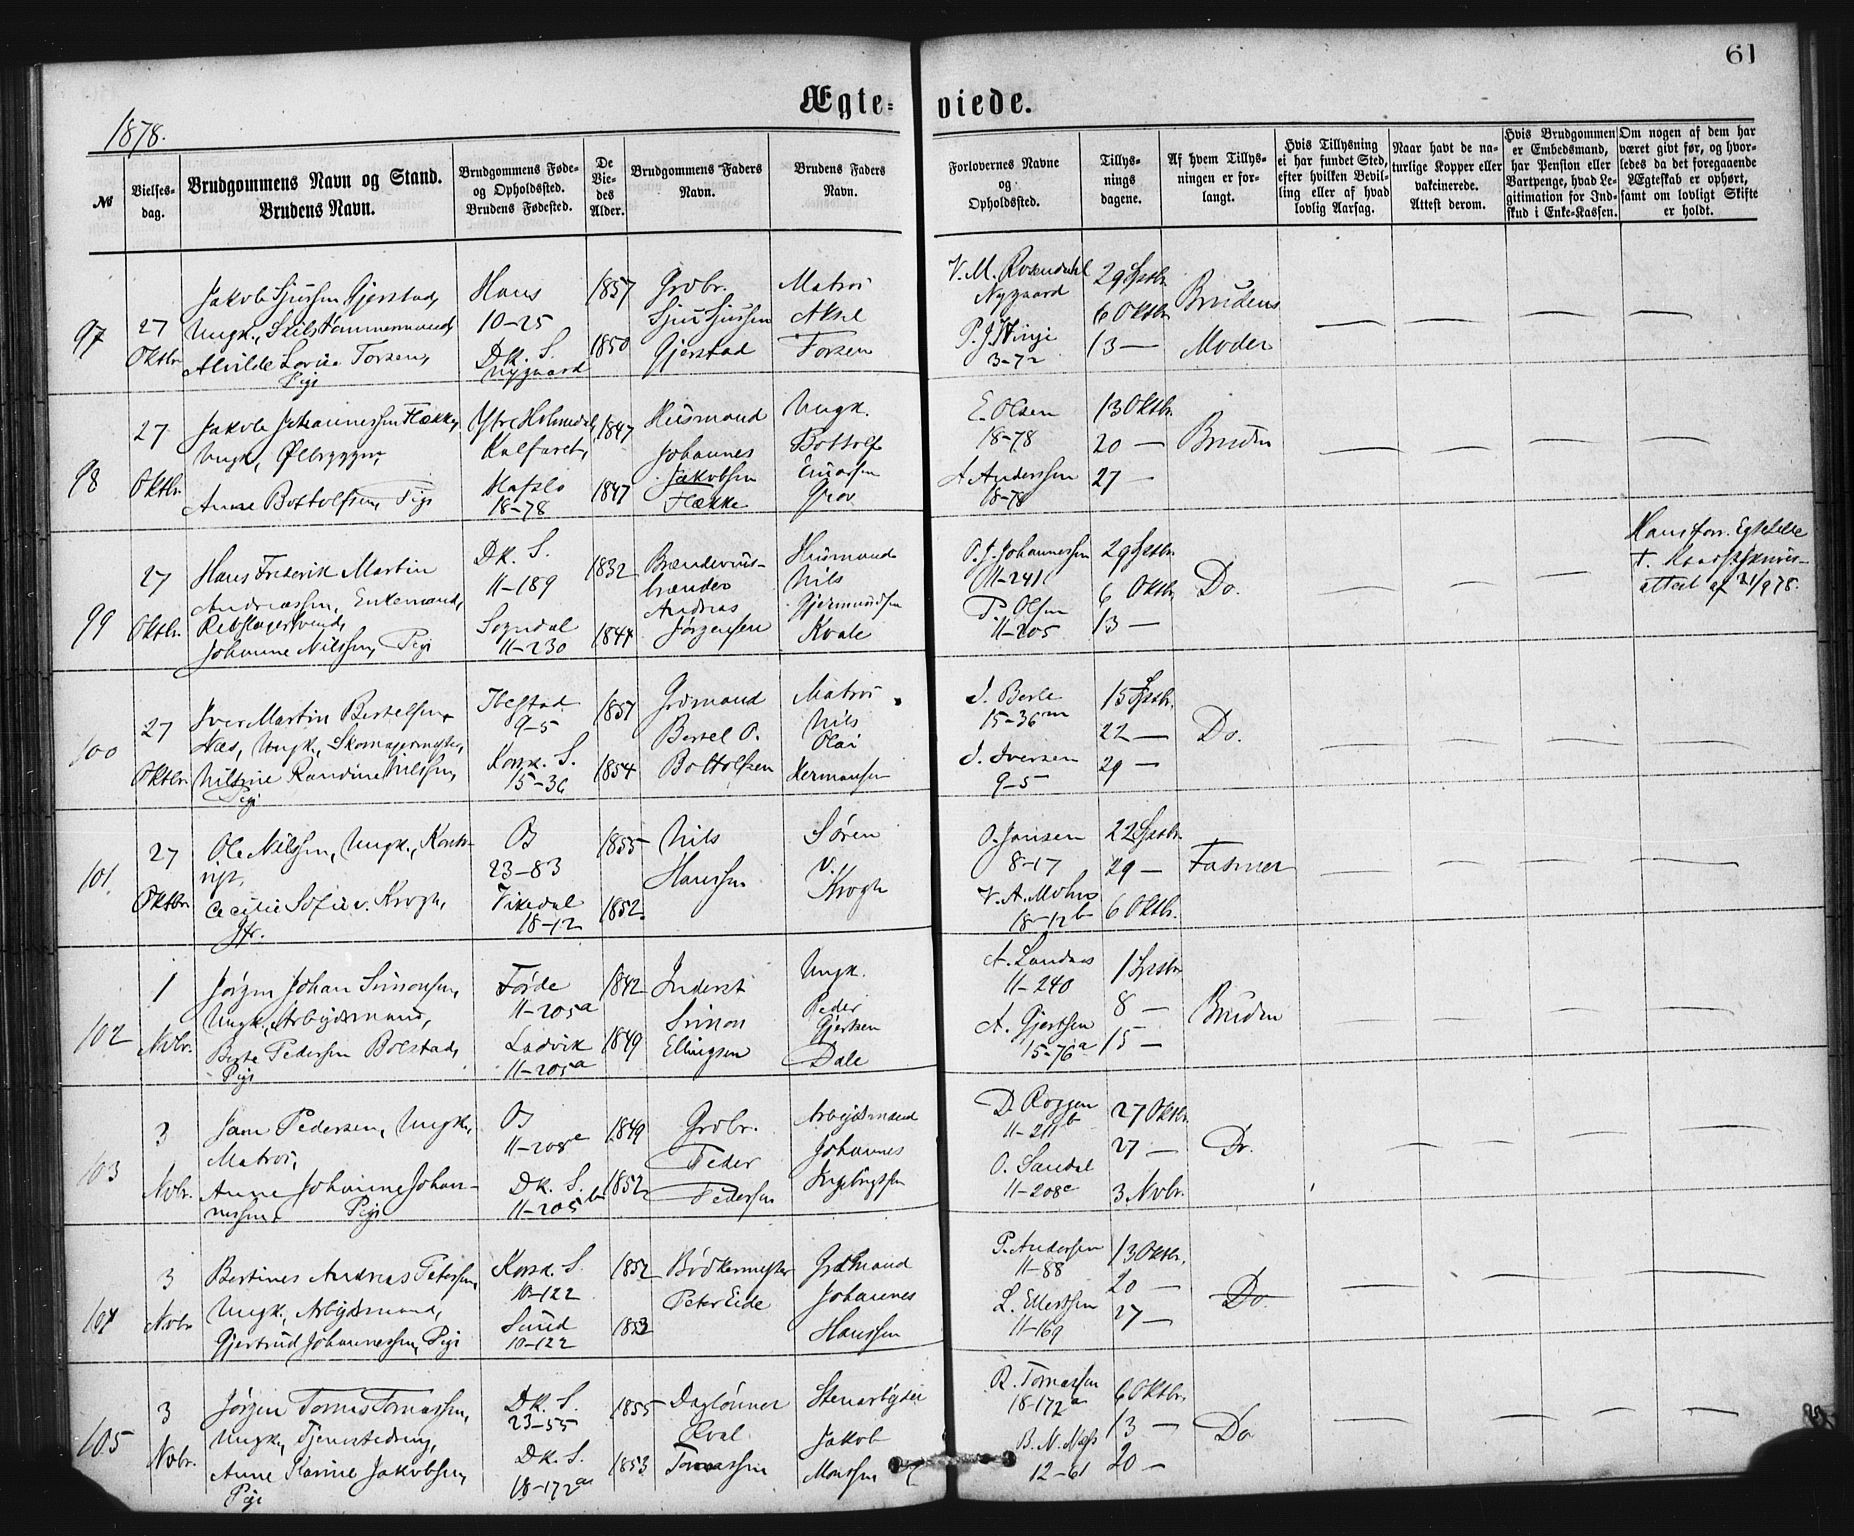 61
Ægte=
viede.
1878.
№
Vielses-
dag.
Brudgommens Navn og Stand.
Brudens Navn.
Brudgommens Føde-
og Opholdssted.
Brudens Fødested.
De
Vie-
des
Alder.
Brudgommens Faders
Navn.
Brudens Faders
Navn.
Forlovernes Navne
og
Opholdssted.
Tillys-
nings
dagene.
Af hvem Tillys-
ningen er for-
langt.
Hvis Tillysning
ei har fundet Sted,
efter hvilken Bevil-
ling eller af hvad
lovlig Aarsag.
Naar havt de na-
turlige Kopper eller
vakcinerede.
Attest derom.
Hvis Brudgommen
er Embedsmand,
har Pension eller
Vartpenge, hvad Le-
gitimation for Ind-
skud i Enke-Kassen.
Om nogen af dem har
været givt før, og hvor-
ledes da det foregaaende
Ægteskab er ophørt,
samt om lovligt Skifte
er holdt.
97
27
Oktbr.
Jakob Sjursen Gjerstad,
Ungk., Skibstømmermand,
Alvilde Lovise Torsen,
Pige
Haus
10-25
Dk. S.
Nygaard
1857
1850
Grdbr.
Sjur Sjursen
Gjerstad
Matros
Aksel
Torsen
V. M. Rosendahl
Nygaard
P. J. Vinje
3-72
29 Sptbr.
6 Oktbr.
13 —
Brudens
Moder
98
27
Oktbr.
Jakob Johannessen Flække,
Ungk., Ølbrygger,
Anne Bottolfsen, Pige
Ytre Holmedal
Kalfaret,
Hafslo
18-78
1847
1847
Husmand
Johannes
Jakobsen
Flække
Ungk.
Bottolf
Einarsen
Grov
E. Olsen
18-78
A Anderssen
18-78
13 Oktbr.
20 —
27 —
Bruden
99
27
Oktbr.
Hans Frederik Martin
Andreassen, Enkemand,
Rebslagersvend,
Johanne Nilssen, Pige
Dk. S.
11-189
Sogndal
11-230
1832
1844
Brændevins-
brænder
Andreas
Jørgensen
Husmand
Nils
Gjermundsen
Kvale
O. J. Johannessen
11-241
P. Olsen
11-205
29 Sptbr.
6 Oktbr.
13 —
Do.
Hans forr. Egtefelle
†.
attest af 21/9 78.
100
27
Oktbr.
Iver Martin Bertelsen
Næs, Ungk., Skomagermester,
Nilsine Randine Nilssen,
Pige
Ibestad
9-5
Korsk. S.
15-36
1851
1854
Grdmand
Bertel O.
Bottolfsen
Matros
Nils
Olai
Hermansen
J. Berle
15-36 m
J. Iversen
9-5
15 Sptbr.
22 —
29 —
Do.
101
27
Oktbr.
Ole Nilssen, Ungk., Kontor-
ist,
Cecilie Sofie v. Krogh,
Jfr.
Os
23-83
Vikedal
18-12
1855
1852
Nils
Hanssen
Søren
v.
Krogh
O. Jansen
8-17
V. A. Mohns
18-12 b
22 Sptbr.
29 —
6 Oktbr.
Fasmer
102
1
Nvbr.
Jørgen Johan Simonsen,
Ungk., Arbeidsmand,
Berte Pedersen Bolstad,
Pige
Førde
11-205 a
Ladvik
11-205 a
1842
1849
Inderst
Simon
Ellingsen
Ungk.
Peder
Gjertsen
Dale
A. Landaas
11-240
A. Gjertsen
15-76 a
1 Sptbr.
8 —
15 —
Bruden
103
3
Nvbr.
Jan Pedersen, Ungk.,
Matros,
Anne Johanne Johan-
nessen, Pige
Os
11-208 e
Dk. S.
11-205 b
1849
1852
Grdbr.
Peder
Pedersen
Arbeidsmand
Johannes
Ingebrigtsen
D. Roggen
11-211 b
O. Sandal
11-208 e
27 Oktbr.
27 —
3 Nvbr.
Do.
104
3
Nvbr
Bertines Andreas Petersen,
Ungk., Arbeidsmand,
Gjertrud Johannessen, Pige
Korsk. S.
10-122
Sund
10-122
1852
1853
Bødkermester
Peter Eide
Grdmand
Johannes
Hanssen
P. Andersen
11-88
L. Ellertsen
11-169
13 Oktbr.
20 —
27 —
Do.
105
3
Nvbr.
Jørgen Tomas Tomassen,
Ungk., Tjenestedreng,
Anne Karine Jakobsen,
Pige
Dk. S.
23-55
Dk. S.
18-172 a
1855
1853
Daglønner
Roal
Tomassen
Stenarbeider
Jakob
Monssen
R. Tomassen
18-172 a
B. N. Næss
12-61
6 Oktbr.
13 —
20 —
Do